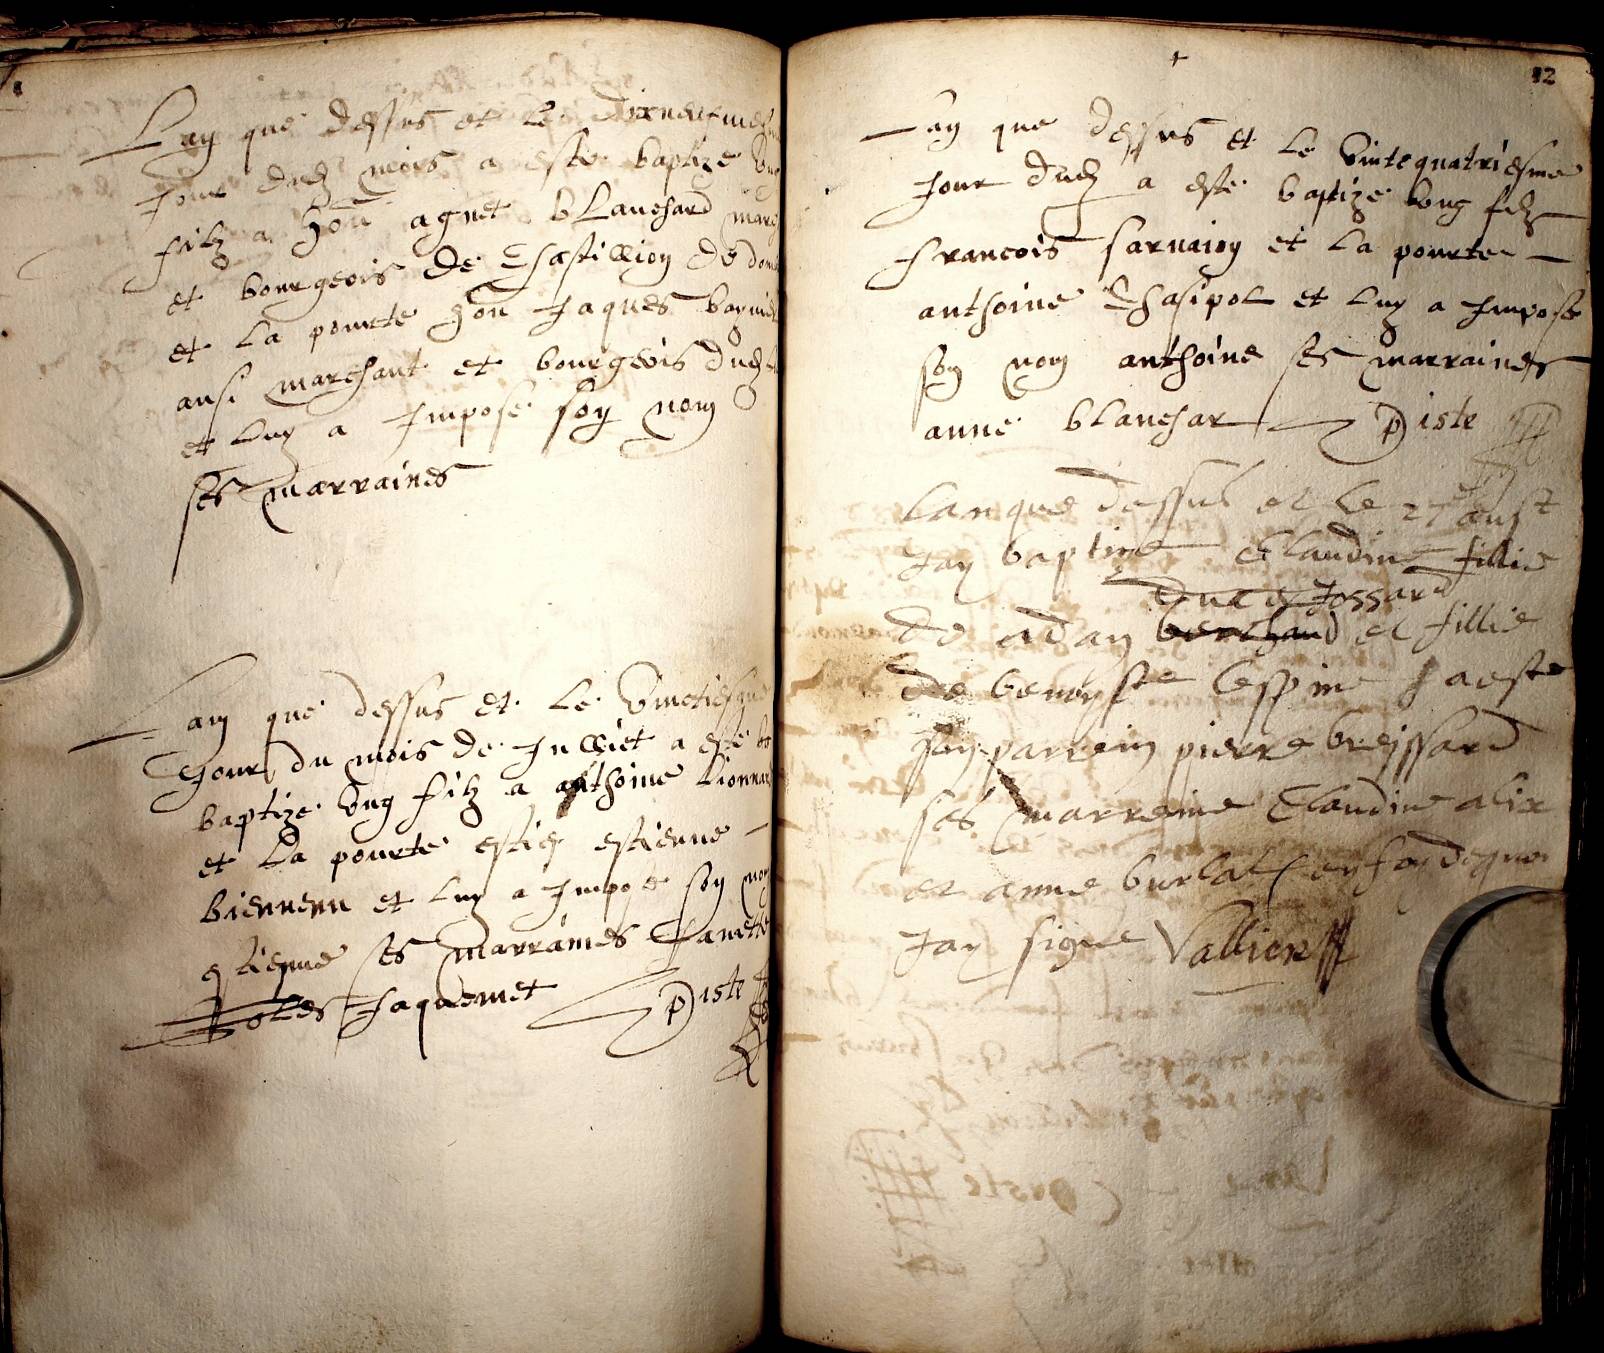 Lan que dessus et le dixneufviesme
Jour dud mois a este baptize ung
filz a hon agnet blanchard marc
et bourgeois de Chastillion de dom
et la pourte hon Jaques
ausi marchant et bourgeois dud
et luy a Impose son nom
ses marraines
Lan que dessus et le Vinctiesme
Jour du mois de Julliet a este
baptize ung filz a anthoine Lionnard
et la pourte estienne
bienvenu et luy a Impose son nom
estienne ses marraines Panette
Jaquemet Piste
12
Lan que dessus et le Vintequatriesme
Jour dud a este baptize ung filz
francois sarvaion et la pourte
anthoine Chasipol et luy a Impose
son nom anthoine ses marraines
anne blanchar Piste
Lan que dessus et le 27 aust
Jay baptize Claudine fillie
Jossard
de adam et fillie
de benoyste lespine Ha este
son parrein pierre breyssard
ses marreine Claudine alix
et anne burlat en foy de quoi
Jay signe Vallier